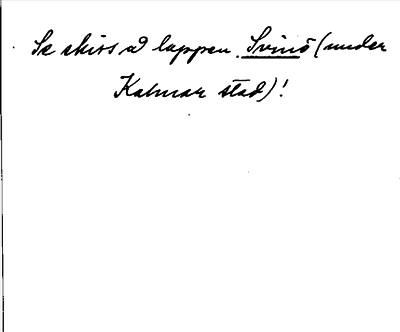 Se skiss å lappen Svinö (under
Kalmar stad)!